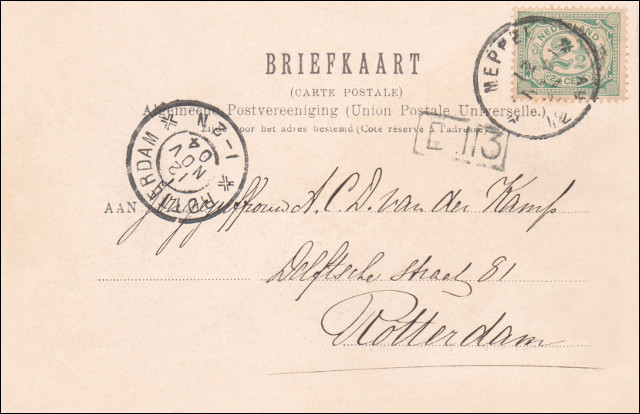 BRIEFKAART
(CARTE POSTALE)
Algemeene Postvereeniging (Union Postale Universelle.)
Zijde voor het adres bestemd (Cote réservé à l'adresse)
NEDERLAND
2½
CENT
MEPPEL
113
ROTTERDAM
NOV
04
AAN Mejuffrouw A. C. D. van der Kamp
Delftsche straat 81
Rotterdam